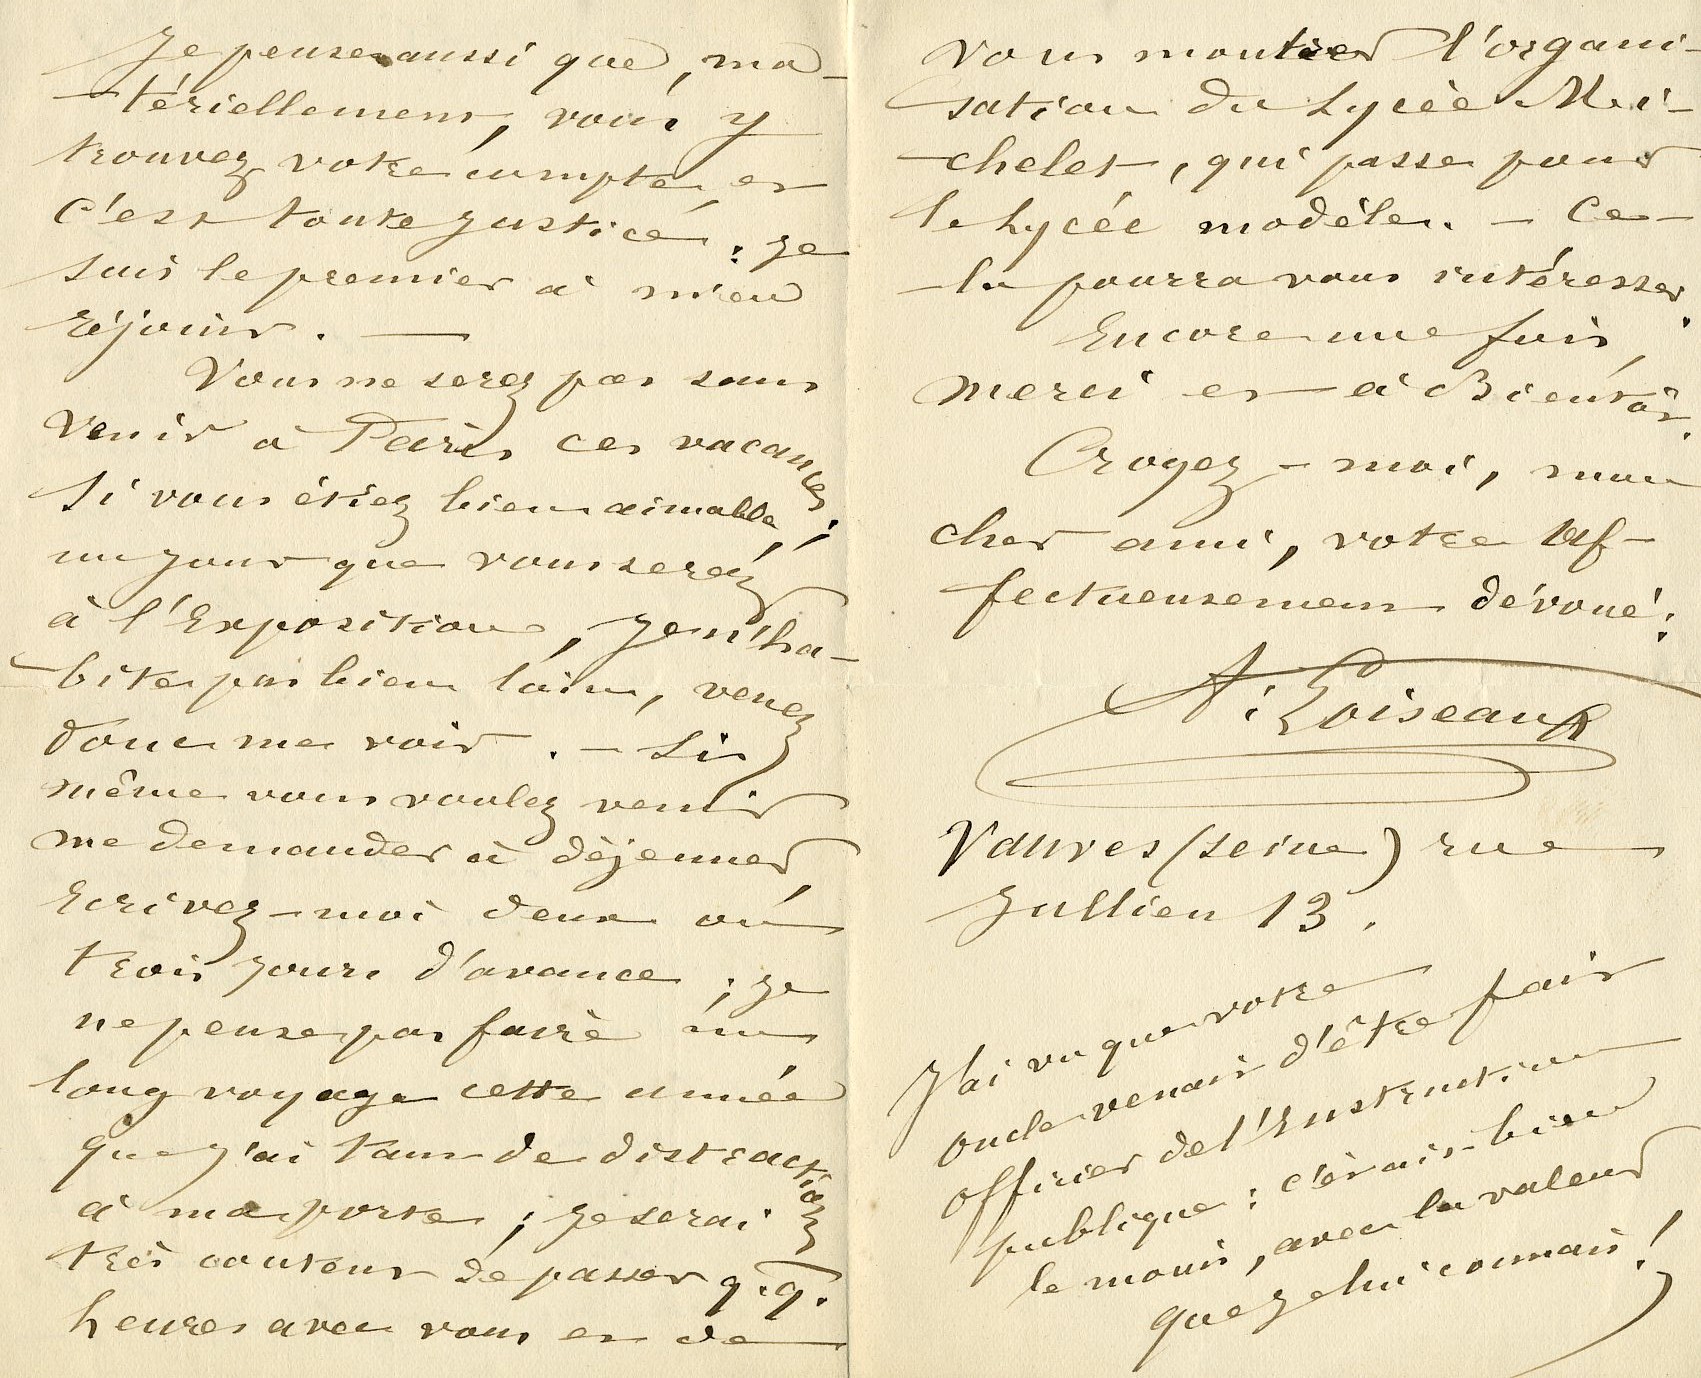 Je pense aussi que, ma-
-tériellement, vous y
trouvez votre compte, et
c'est toute justice : je
suis le premier à m'en
réjouir. —
Vous ne serez pas sans
venir à Paris ces vacances ;
si vous étiez bien aimable,
un jour que vous serez
à l'Exposition, je n'ha-
-bite pas bien loin, venez
donc me voir. — Si
même vous voulez venir
me demander à déjeuner,
Ecrivez-moi deux ou
trois jours d'avance ; je
ne pense pas faire un
long voyage cette année
que j'ai tant de distractions
à ma porte ; je serai
très content de passer q.q.
heures avec vous et de
vous montrer l'organi-
sation du Lycée Mi-
-chelet, qui passe pour
le Lycée modèle. — Ce-
-la pourra vous intéresser.
Encore une fois,
merci et à Bientôt.
Croyez-moi, mon
cher ami, votre Af-
fectueusement dévoué :
A. Loiseau
Vanves (Seine) rue
Jullien 13.
J'ai vu que votre
oncle venait d'être fait
officier de l'Instruction
publique : c'était bien
le moins, avec la valeur
que je lui connais !